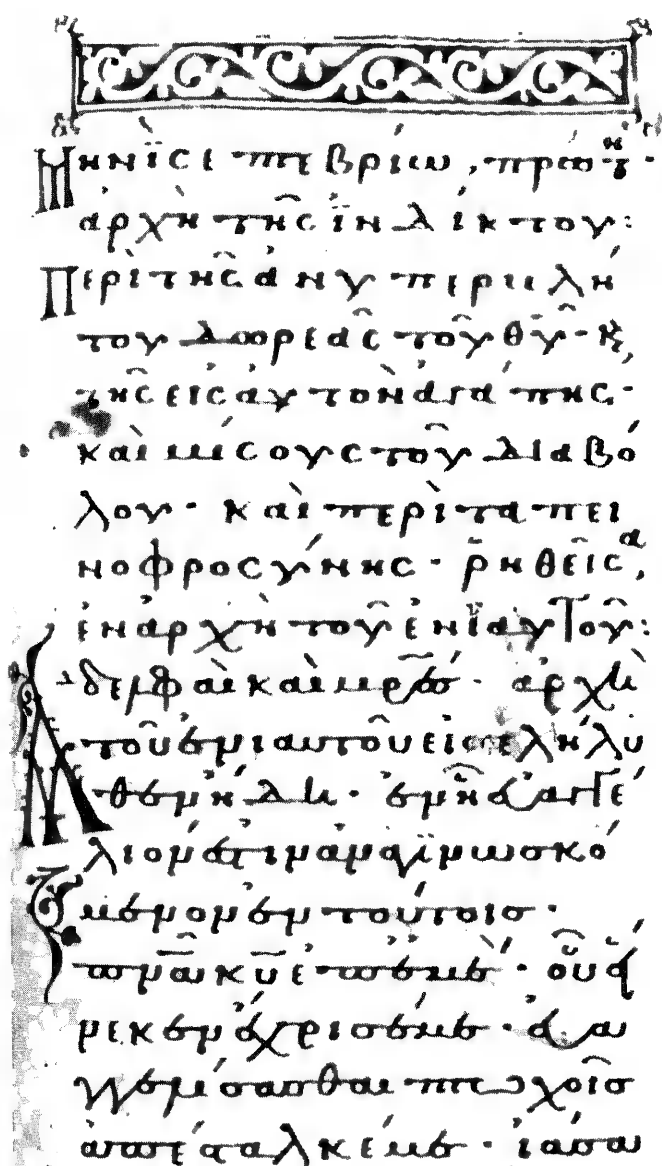 Μηνῒ σεπτεβρίω, πρώτη·
ἀρχὴ τῆς ἰνδίκτου:
Περὶ τῆς ἀνυπερβλή
του δωρεᾶς τοῦ θ̅υ̅· κ̀
τῆς εἰς αὐτὸν ἀγάπης·
καὶ μίσους τοῦ διαβό
λου· καὶ περὶ ταπει
νοφροσύνης· ῥηθεῖσα,
ἐν ἀρχῆ τοῦ ἐνιαυτοῦ:
Ἀδελφαὶ καὶ μ̅ρ̅ε̅ς· ἀρχὴ
τοῦ ἐνιαυτοῦ εἰσελήλυ
θεν ἤδη· ἐν ἧ εὐαγγέ
λιον ἔστιν ἀναγϊνωσκό
μενον ἐν τούτοις·
π̅ν̅α̅ κ̅υ̅ ἐπ' ἐμέ· οὗ εἵ
νεκεν ἔχρισέ με· εὐα
γγελίσασθαι πτωχοῖς
ἀπέσταλκέ με· ἰάσα